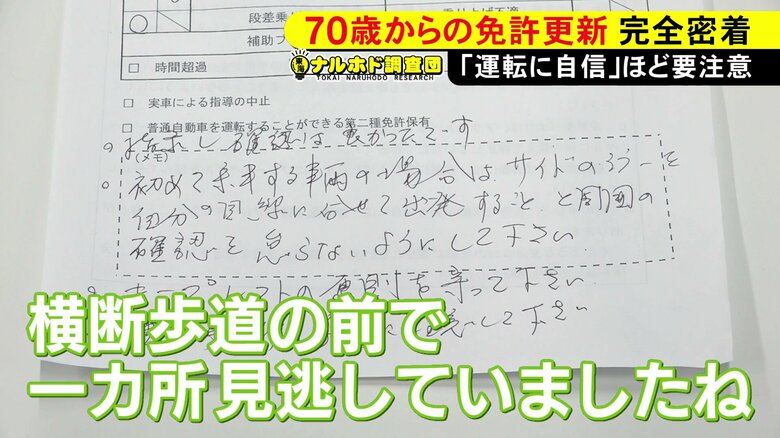 70歳からの免許更新 完全密着
東海 ナルホド調査団
TOKAI NARUHODO RESEARCH
「運転に自信」ほど要注意
段差乗
補助ブ
□ 時間超過
□ 実車による指導の中止
□ 普通自動車を運転することができる第二種免許保有
(メモ)
確認は良かったです
初めて乗車する車両の場合は、サイドのミラーを
自分の目線に合せて出発すること、と周囲の
確認を怠らないようにして下さい
の原則を守って下さい
して下さい
横断歩道の前で
一カ所見逃していましたね